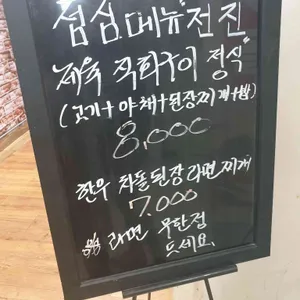 점심메뉴전진
제육 직화구이 정식
(고기+야채+된장찌개+밥)
8,000
한우 차돌된장라면찌개
7.000
라면 무한정
드세요